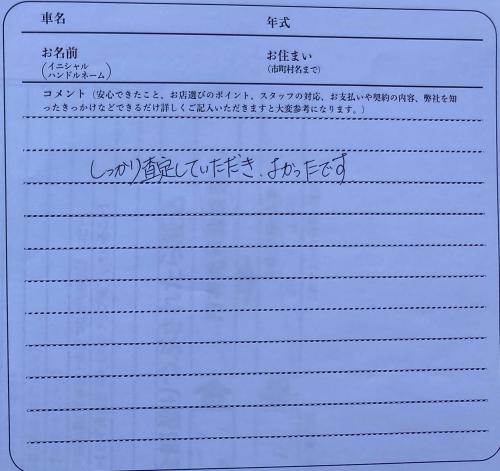 車名 年式
お名前 お住まい
(イニシャル (市町村名まで)
ハンドルネーム)
コメント(安心できたこと、お店選びのポイント、スタッフの対応、お支払いや契約の内容、弊社を知
ったきっかけなどできるだけ詳しくご記入いただきますと大変参考になります。)
しっかり査定していただき、よかったです